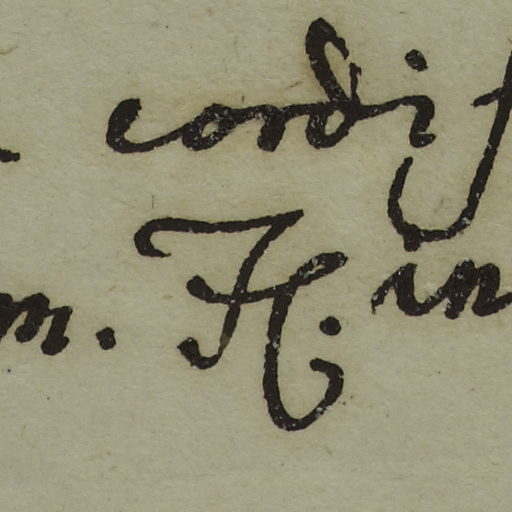 cordi
m. H. in